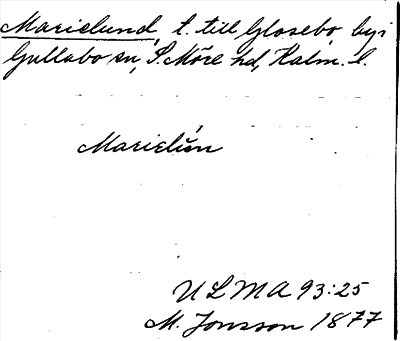 Marielund, t. till Glosebo by i
Gullabo sn, S. Möre hd, Kalm. l.
Marielún
ULMA 93:25
M. Jonsson 1877